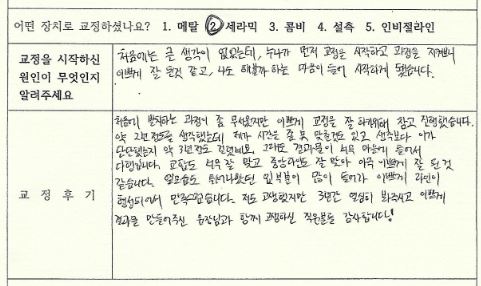 어떤 장치로 교정하셨나요? 1. 메탈 2. 세라믹 3. 콤비 4. 설측 5. 인비절라인
교정을 시작하신
원인이 무엇인지
알려주세요
처음에는 큰 생각이 없었는데, 누나가 먼저 교정을 시작하고 과정을 지켜보니
이쁘게 잘 된것 같고, 나도 해볼까 하는 마음이 들어 시작하게 됐습니다.
교 정 후 기
처음에 발치하는 과정이 좀 무서웠지만 이쁘게 교정을 잘 하기위해 참고 진행했습니다.
약 2년정도를 생각했는데 제가 시간을 좀 못 맞춘것도 있고 생각보다 이가
단단했는지 약 3년정도 걸렸네요. 그래도 결과물이 너무 마음에 들어서
다행입니다. 교합도 너무 잘 맞고 중심선도 잘 맞아 아주 이쁘게 잘 된 것
같습니다. 옆모습도 튀어나왔던 입부분이 많이 들어가 이쁘게 라인이
형성되어서 만족스럽습니다. 저도 고생했지만 3년간 열심히 봐주시고 이쁘게
결과를 만들어주신 원장님과 함께 고생하신 직원분들 감사합니다!